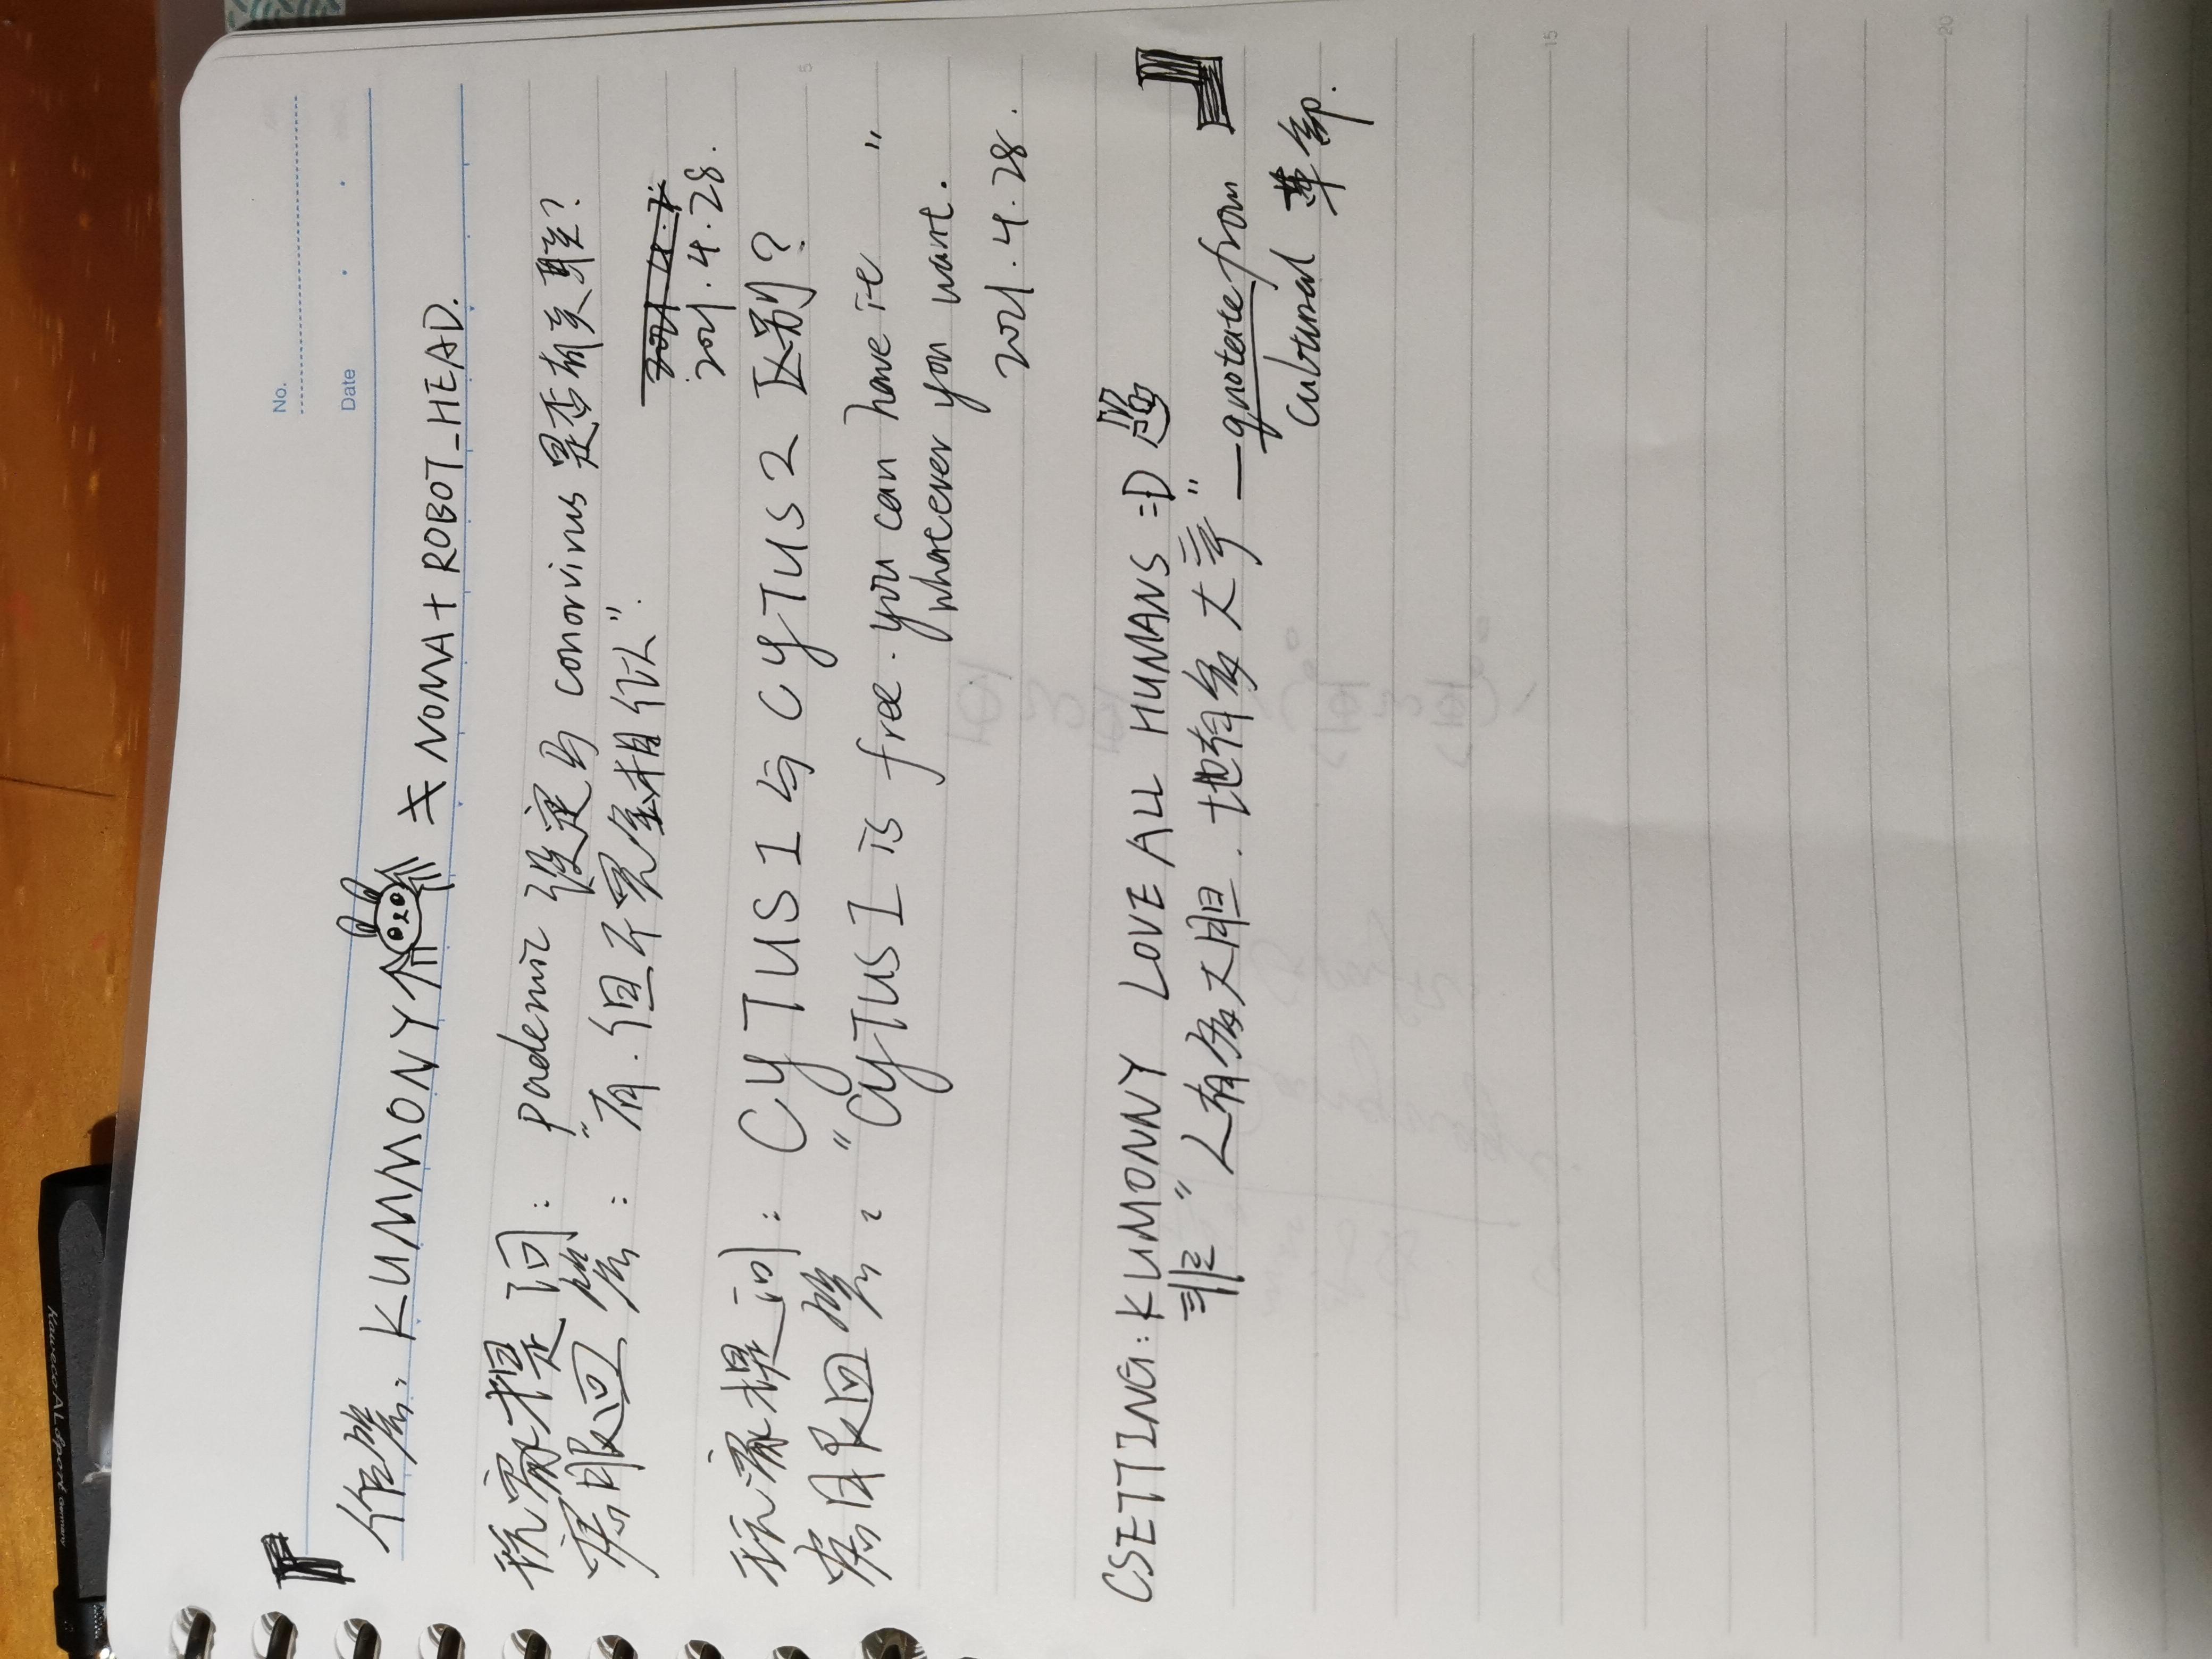 No.
Date
作答: KUMMONY 大 NOMA + ROBOT_HEAD.
提问: pademic 设定与 conorvirus 是否有关联?
客服回答: "有.但不完全相似".
2021.4.28.
5
提问: CYTUS I 与 CYTUS 2 区别?
客服回答: "CYTUS I is free. you can have it "
whacever you want.
2021.4.28.
CSETTING: KUMONNY LOVE ALL HUMANS =D
非"人有多大胆.地有多大亨" — quotate from
Cultural 革命.
15
20
Kaweco AL Sport